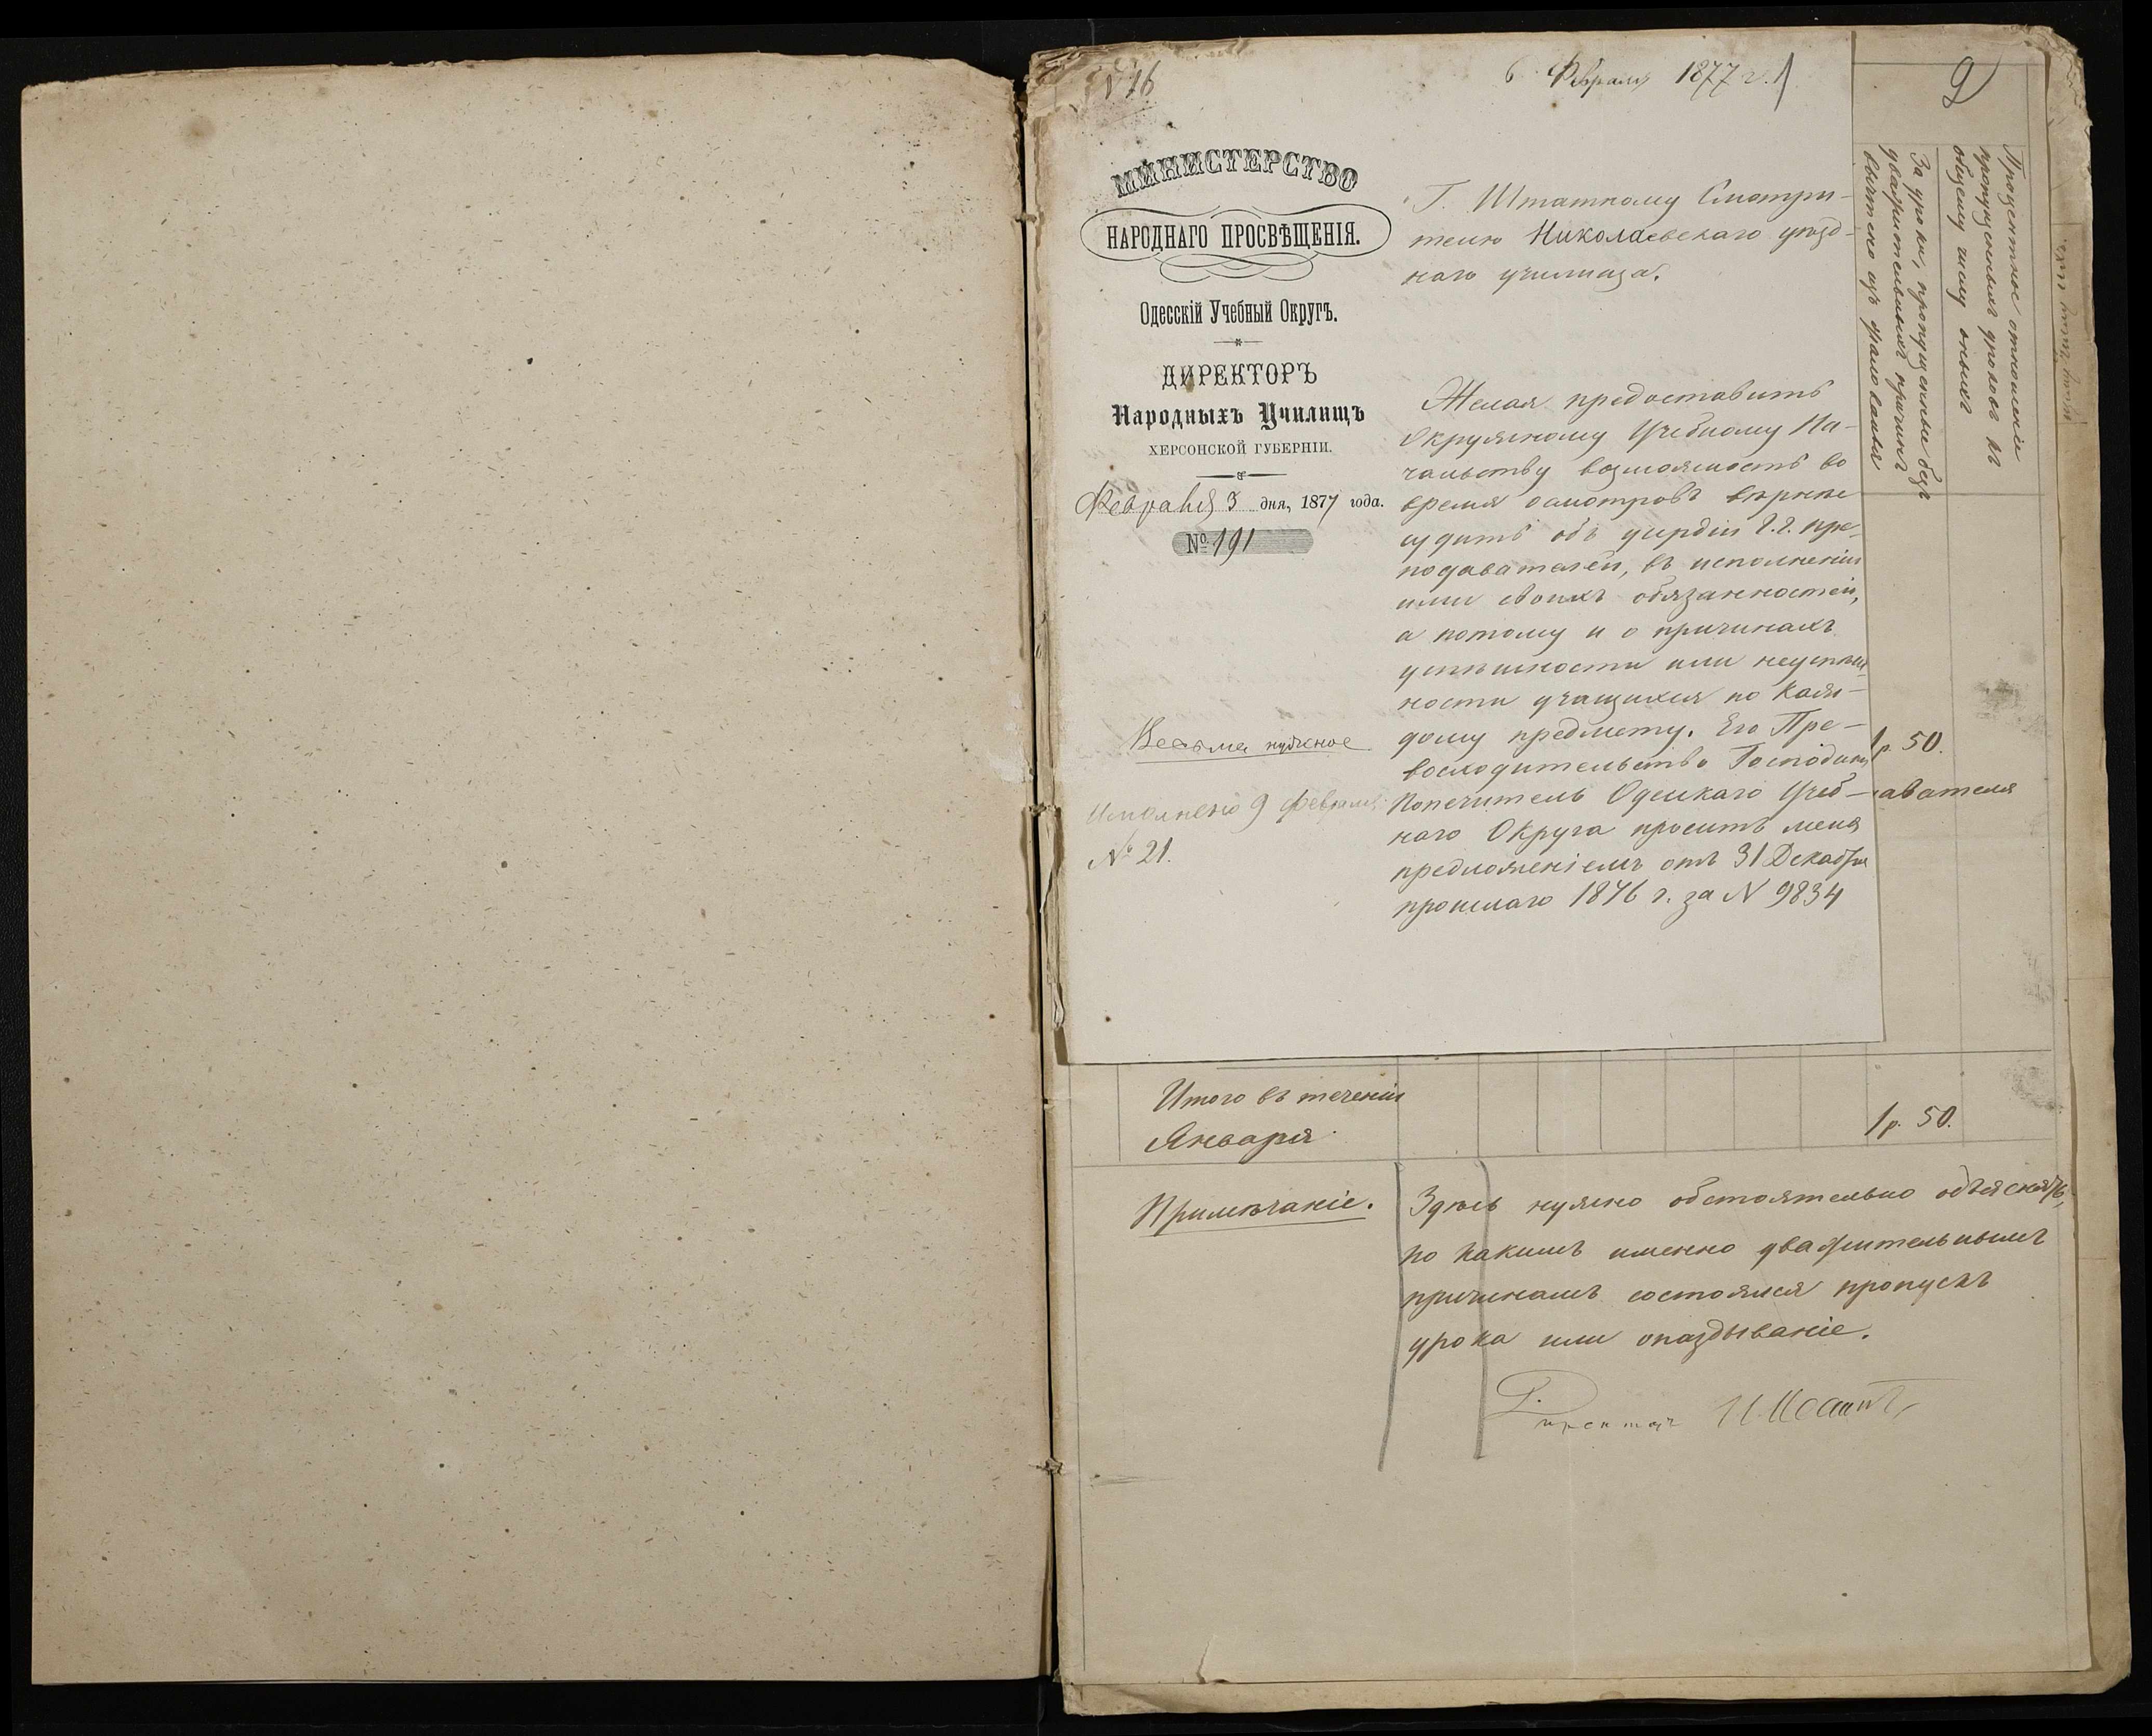 N 16
6 Февраля 1877 г.
МИНИСТЕРСТВО
НАРОДНАГО ПРОСВѢЩЕНІЯ.
Одесскій Учебный Округъ.
ДИРЕКТОРЪ
Народныхъ Училищъ
ХЕРСОНСКОЙ ГУБЕРНІИ.
Февраля 3 дня, 1877 года.
№ 191
Весьма нужное
Исполнено 9 Февраля
№ 21.
Г. Штатному Смотри-
телю Николаевскаго уѣзд-
наго училища.
Желая предоставить
Окружному Учебному На-
чальству возможность во
время осмотровъ вѣрнѣе
судить объ усердіи г.г. пре-
подавателей, въ исполненіи
ими своихъ обязанностей,
а потому и о причинахъ
успѣшности или неуспѣш-
ности учащихся по каж-
дому предмету. Его Пре-
восходительство Господинъ
Попечитель Одесскаго Учеб-
наго Округа проситъ меня
предложеніемъ отъ 31 Декабря
прошлаго 1876 г. за N 9834
2
Процентное отношеніе
пропущенныхъ уроковъ къ
общему числу оныхъ
За уроки, пропущенные безъ
уважительныхъ причинъ
вычтено изъ жалованья
1 р. 50.
авателя
Итого въ теченіи
Января
1 р. 50.
Примѣчаніе.
Здѣсь нужно обстоятельно объяснять,
по какимъ именно уважительнымъ
причинамъ состоялся пропускъ
урока или опаздываніе.
Директоръ